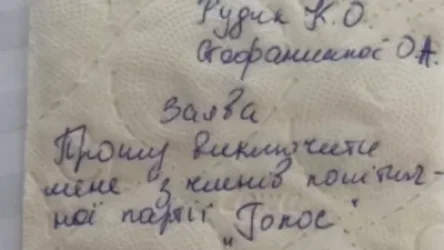 Рудик К.О
Стефанишної О.А.
Заява
Прошу виключити
мене з членів політич-
ної партії „Голос"